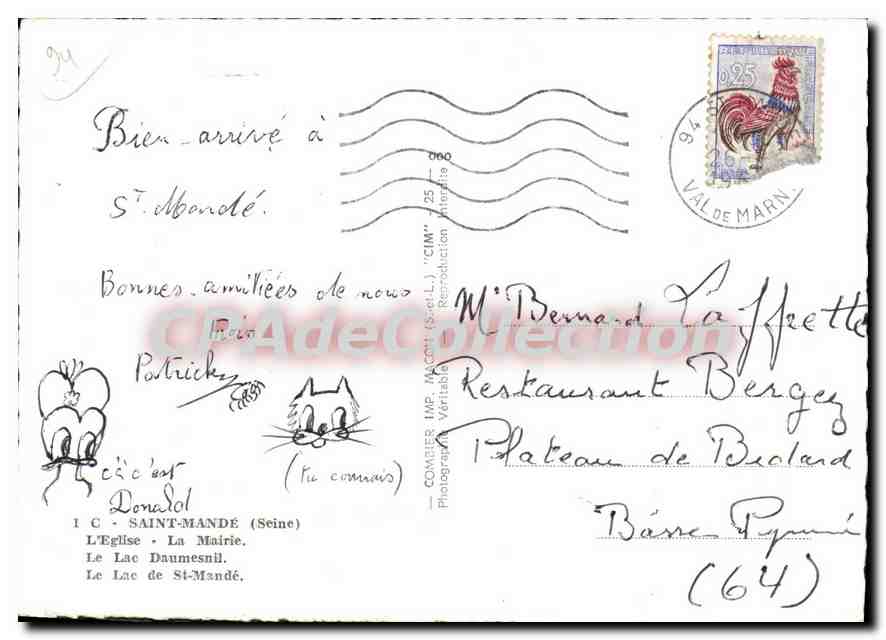 94
Bien arrivé à
St. Mandé.
Bonnes amitiées de nous
Trois
Patrick
çà c'est
Donald
(tu connais)
1 C - SAINT-MANDÉ (Seine)
L'Eglise - La Mairie.
Le Lac Daumesnil.
Le Lac de St-Mandé.
— COMBIER IMP. MACON (S.-et-L.) "CIM" - 25 —
Photographie Véritable Reproduction Interdite
000
0,25
94
26
VAL DE MARN.
Mr Bernard Laffrette
Restaurant Bergez
Plateau de Bedard
Basse Pyréné
(64)
CPAdeCollection